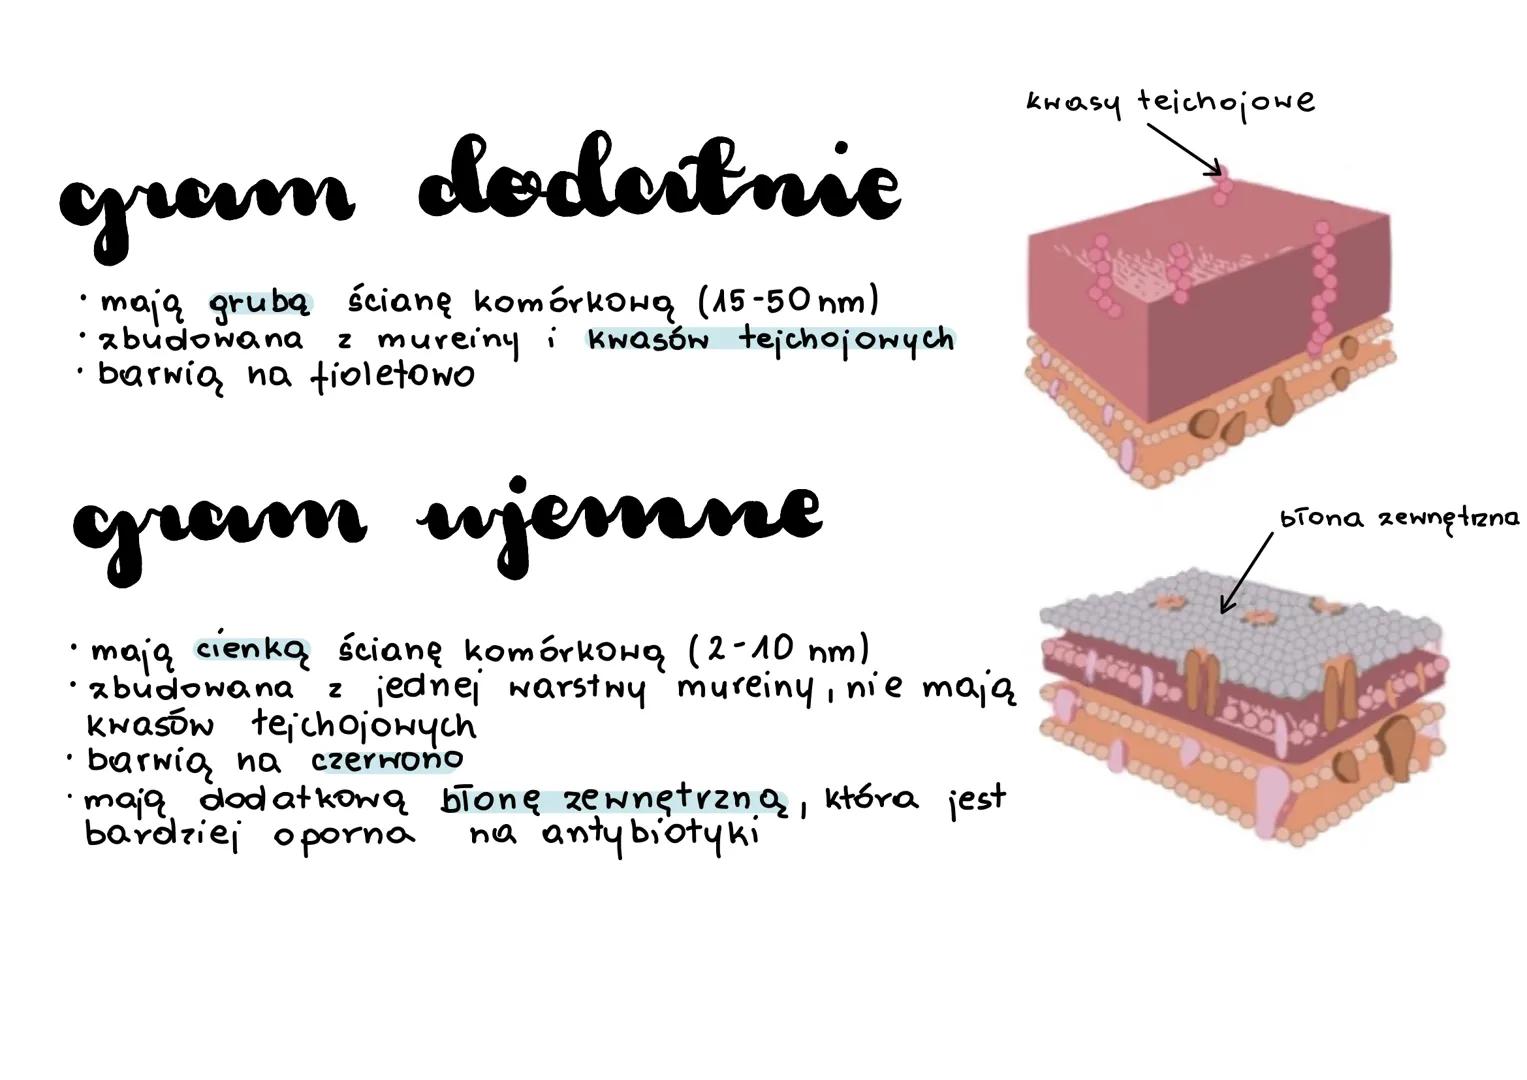 kwasy teichojowe
gram dodatnie
· mają grubą ścianę komórkową (15-50 nm)
· zbudowana z mureiny i kwasów tejchojowych
· barwią na fioletowo
gram ujemne
błona zewnętrzna
· mają cienką ścianę komórkową (2-10 nm)
· zbudowana z jednej warstwy mureiny, nie mają
kwasów tejchojowych
· barwią na czerwono
· mają dodatkową błonę zewnętrzną, która jest
bardziej oporna na antybiotyki